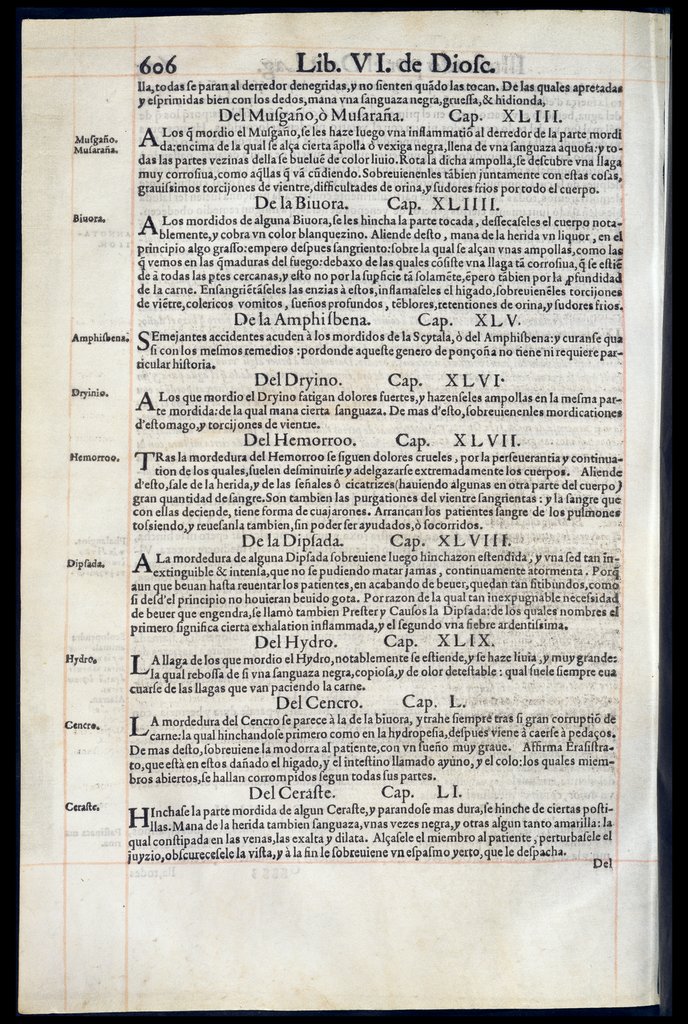 606 Lib. VI. de Diosc.
lla, todas se paran al derredor denegridas, y no sienten quãdo las tocan. De las quales apretadas
y esprimidas bien con los dedos, mana vna sanguaza negra, gruessa, & hidionda,
Del Musgaño, ò Musaraña. Cap. XLIII.
Musgaño.
Musaraña.
ALos q̃ mordio el Musgaño, se les haze luego vna inflammatiõ al derredor de la parte mordi
da: encima de la qual se alça cierta ãpolla ò vexiga negra, llena de vna sanguaza aquosa: y to-
das las partes vezinas della se bueluẽ de color liuio. Rota la dicha ampolla, se descubre vna llaga
muy corrosiua, como aq̃llas q̃ vã cũdiendo. Sobreuienenles tãbien juntamente con estas cosas,
grauissimos torcijones de vientre, difficultades de orina, y sudores frios por todo el cuerpo.
De la Biuora. Cap. XLIIII.
Biuora.
ALos mordidos de alguna Biuora, se les hincha la parte tocada, dessecaseles el cuerpo nota-
blemente, y cobra vn color blanquezino. Aliende desto, mana de la herida vn liquor, en el
principio algo grasso: empero despues sangriento: sobre la qual se alçan vnas ampollas, como las
q̃ vemos en las q̃maduras del fuego: debaxo de las quales cõsiste vna llaga tã corrosiua, q̃ se estiẽ
de à todas las ptes cercanas, y esto no por la supficie tã solamẽte, ẽpero tãbien por la ꝓfundidad
de la carne. Ensangriẽtãseles las enzias à estos, inflamaseles el higado, sobreuienẽles torcijones
de viẽtre, colericos vomitos, sueños profundos, tẽblores, retentiones de orina, y sudores frios.
De la Amphisbena. Cap. XLV.
Amphisbena.
SEmejantes accidentes acuden à los mordidos de la Scytala, ò del Amphisbena: y curanse qua
si con los mesmos remedios: pordonde aqueste genero de ponçoña no tiene ni requiere par-
ticular historia.
Del Dryino. Cap. XLVI.
Dryinio.
ALos que mordio el Dryino fatigan dolores fuertes, y hazenseles ampollas en la mesma par-
te mordida: de la qual mana cierta sanguaza. De mas d'esto, sobreuienenles mordicationes
d'estomago, y torcijones de vientre.
Del Hemorroo. Cap. XLVII.
Hemorroo.
TRas la mordedura del Hemorroo se siguen dolores crueles, por la perseuerantia y continua-
tion de los quales, suelen desminuirse y adelgazarse extremadamente los cuerpos. Aliende
d'esto, sale de la herida, y de las señales ò cicatrizes (hauiendo algunas en otra parte del cuerpo)
gran quantidad de sangre. Son tambien las purgationes del vientre sangrientas: y la sangre que
con ellas deciende, tiene forma de cuajarones. Arrancan los patientes sangre de los pulmones
tossiendo, y reuesanla tambien, sin poder ser ayudados, ò socorridos.
De la Dipsada. Cap. XLVIII.
Dipsada.
ALa mordedura de alguna Dipsada sobreuiene luego hinchazon estendida, y vna sed tan in-
extinguible & intensa, que no se pudiendo matar jamas, continuamente atormenta. Porq̃
aun que beuan hasta reuentar los patientes, en acabando de beuer, quedan tan sitibundos, como
si desd'el principio no houieran beuido gota. Por razon de la qual tan inexpugnable necessidad
de beuer que engendra, se llamò tambien Prester y Causos la Dipsada: de los quales nombres el
primero significa cierta exhalation inflammada, y el segundo vna fiebre ardentissima.
Del Hydro. Cap. XLIX.
Hydro.
LA llaga de los que mordio el Hydro, notablemente se estiende, y se haze liuia, y muy grande:
la qual rebossa de si vna sanguaza negra, copiosa, y de olor detestable: qual suele siempre eua
cuarse de las llagas que van paciendo la carne.
Del Cencro. Cap. L.
Cencro.
LA mordedura del Cencro se parece à la de la biuora, y trahe siempre tras si gran corruptiõ de
carne: la qual hinchandose primero como en la hydropesia, despues viene à caerse à pedaços.
De mas desto, sobreuiene la modorra al patiente, con vn sueño muy graue. Affirma Erasistra-
to, que està en estos dañado el higado, y el intestino llamado ayuno, y el colo: los quales miem-
bros abiertos, se hallan corrompidos segun todas sus partes.
Del Ceraste. Cap. LI.
Ceraste.
HInchase la parte mordida de algun Ceraste, y parandose mas dura, se hinche de ciertas posti-
llas. Mana de la herida tambien sanguaza, vnas vezes negra, y otras algun tanto amarilla: la
qual constipada en las venas, las exalta y dilata. Alçasele el miembro al patiente, perturbasele el
juyzio, obscurecesele la vista, y à la fin le sobreuiene vn espasmo yerto, que le despacha.
Del